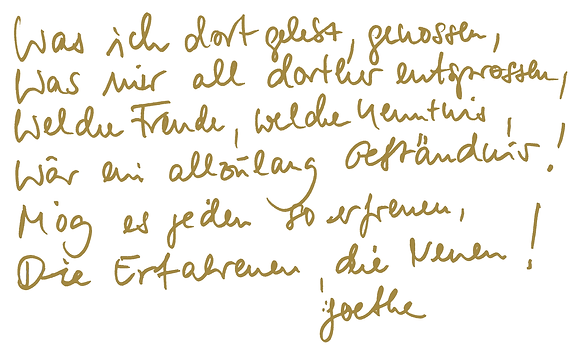 Was ich dort gelebt, genossen,
Was mir all dorther entsprossen,
Welche Freude, welche Kenntnis,
Wär ein allzulang Geständnis!
Mög es jeden so erfreuen,
Die Erfahrenen, die Neuen!
Goethe